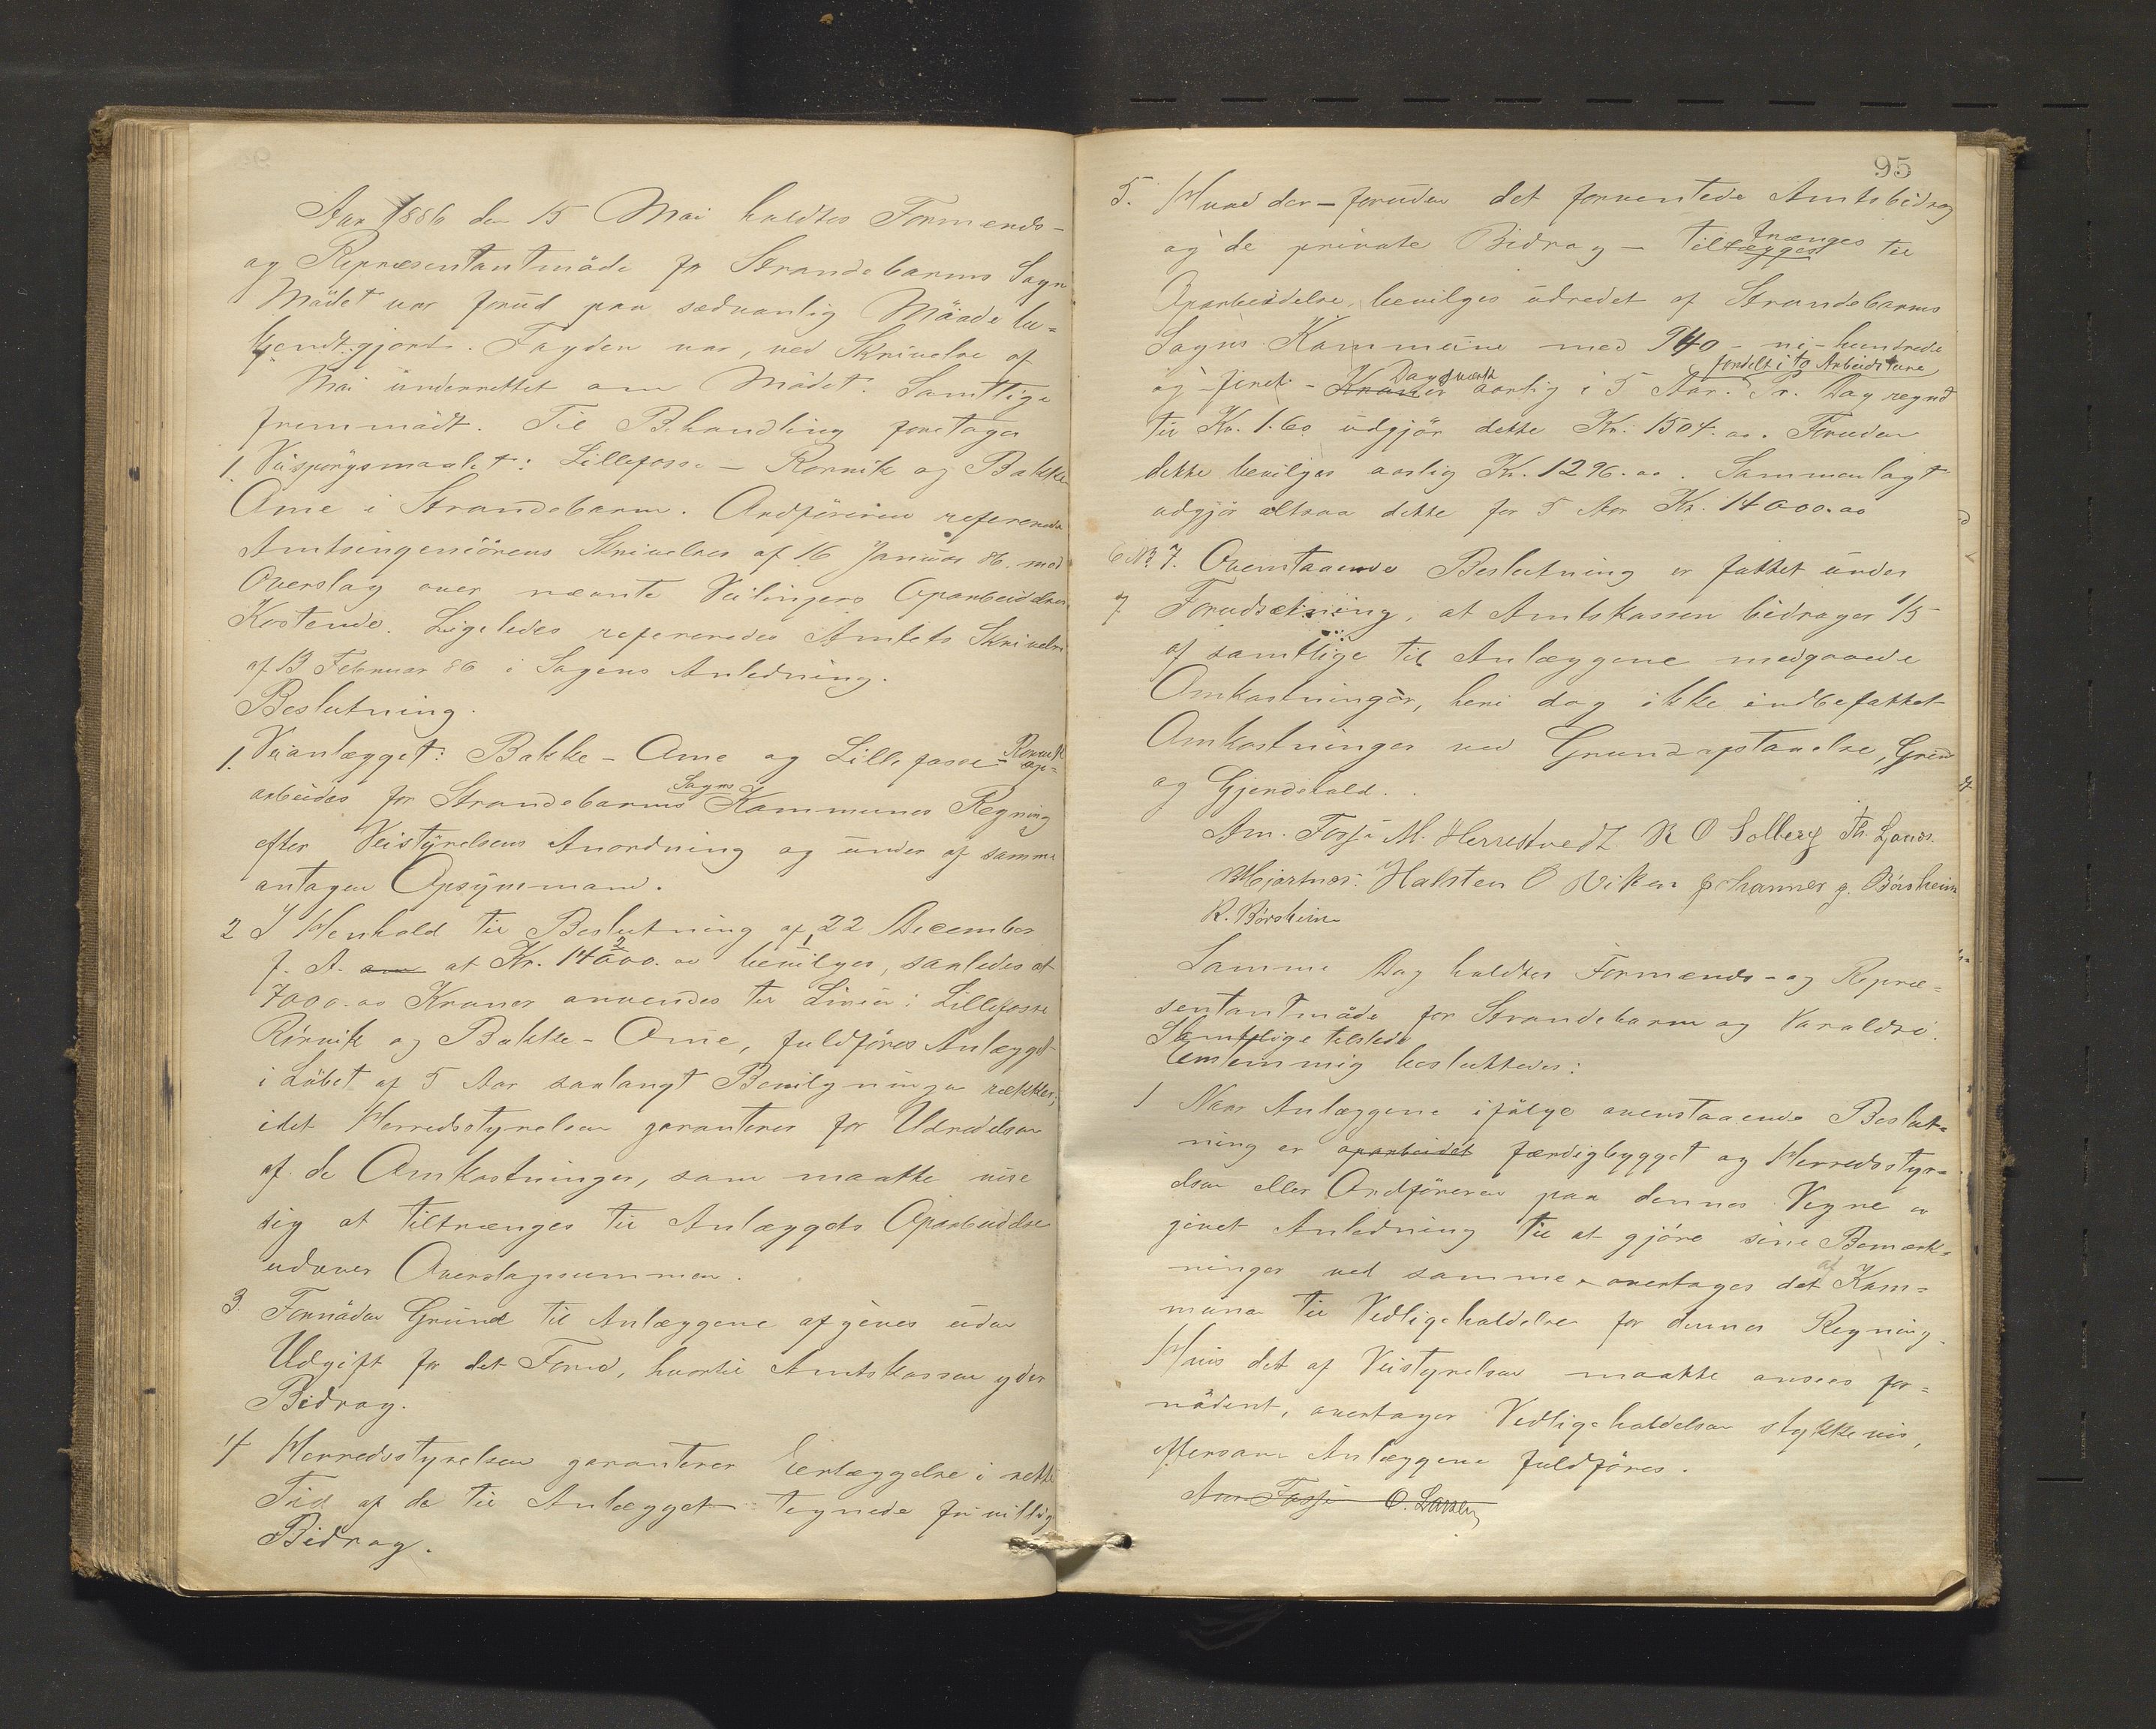 Aar 1886 den 15 Mai holdtes Formænds-
og Repræsentantmöde for Strandebarms Sogn
Mödet var forud paa sædvanlig Maade be-
kjendtgjort. Fogden var, ved Skrivelse af
Mai underrettet om Mödet. Samtlige
fremmödt. Til Behandling foretoges
1. Veispörgsmaalet: Lillefosse - Rörvik og Bakke
Ome i Strandebarm. Ordföreren refererede
Amtsingeniörens Skrivelse af 16 Januar 86. med
Overslag over nævnte Veilinjers Oparbeidelses
Kostende. Ligeledes refereredes Amtets Skrivelse
af 13 Februar 86 i Sagens Anledning.
Beslutning.
1. Veianlægget: Bakke - Ome og Lillefosse - Rörvik op-
arbeides for Strandebarms Sogns Kommunes Regning
efter Veistyrelsens Anordning og under af samme
antagen Opsynsmand.
2 I Henhold til Beslutning af 22 December
f. A. om at Kr. 14000.00 bevilges, saaledes at
7000.00 Kroner anvendes til Linien: Lillefosse
Rörvik og Bakke - Ome, fuldföres Anlægget
i Löbet af 5 Aar saalangt Bevilgningen rækker,
idet Herredsstyrelsen garanterer for Udredelsen
af de Omkostninger, som maatte vise
sig at tiltrænges til Anlæggets Oparbeidelse
udover Overslagssummen.
3. Fornöden Grund til Anlæggene afgives uden
Udgift for det Fond, hvortil Amtskassen yder
Bidrag.
4 Herredsstyrelsen garanterer Erlæggelse i rette
Tid af de til Anlægget tegnede frivillig
Bidrag.
95
5. Hvad der - foruden det forventede Amtsbidrag
og de private Bidrag - tiltrænges til
Oparbeidelse, bevilges udredet af Strandebarms
Sogns Kommune med 940 - ni - hundrede
og firti - Kroner Dagsværk aarlig i 5 Aar. fordelt i to Arbeidsture Pr. Dag regnet
til Kr. 1.60 udgjör dette Kr. 1504.00. Foruden
dette bevilges aarlig Kr. 1296.00. Sammenlagt
udgjör altsaa dette for 5 Aar Kr. 14000.00
6 No 7. Ovenstaaende Beslutning er fattet under
7 Forudsætning, at Amtskassen bidrager 1/5
af samtlige til Anlæggene medgaaede
Omkostninger, heri dog ikke indbefattet
Omkostninger ved Grundafstaaelse, Grind
og Gjerdehold.
Am. Fosse M. Herrestvedt R O Solberg Th. Lond
Hjartnes. Halsten O Viken Johannes J. Börsheim
R. Börsheim
Samme Dag holdtes Formænds- og Repræ-
sentantmöde for Strandebarm og Varaldsö.
Samtlige tilstede
Enstemmig besluttedes:
1 Naar Anlæggene ifölge ovenstaaende Beslut-
ning er oparbeidet færdigbygget og Herredsstyr-
elsen eller Ordföreren paa dennes Vegne er
givet Anledning til at gjöre sine Bemærk-
ninger ved samme, overtages det af Kom-
munen til Vedligeholdelse for dennes Regning.
Hvis det af Veistyrelsen maatte ansees for-
nödent, overtages Vedligeholdelsen stykkevis,
eftersom Anlæggene fuldföres.
Am Fosse O. Larsen